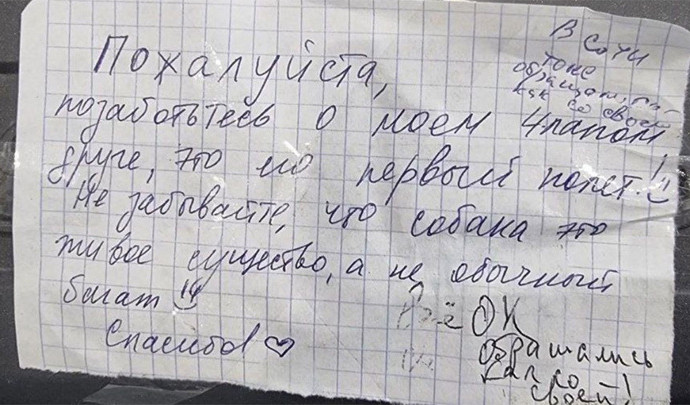 Пожалуйста,
позаботьтесь о моем 4лапом
друге, это его первый полет!
Не забывайте, что собака это
живое существо, а не обычный
багаж
Спасибо! ♡
В Сочи
тоже
как со своей
всё ОК
обращались
как со
своей!